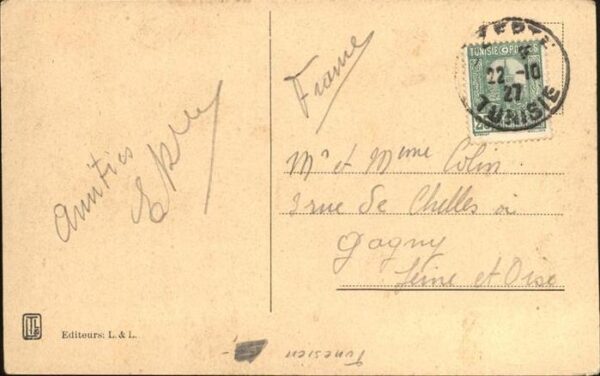 Amitiés
France
TUNISIE POSTES
22 -10
27
TUNISIE
Mr et Mme Colin
3 rue de Chelles à
Gagny
Seine et Oise
LL
Editeurs: L. & L.
Tunesien